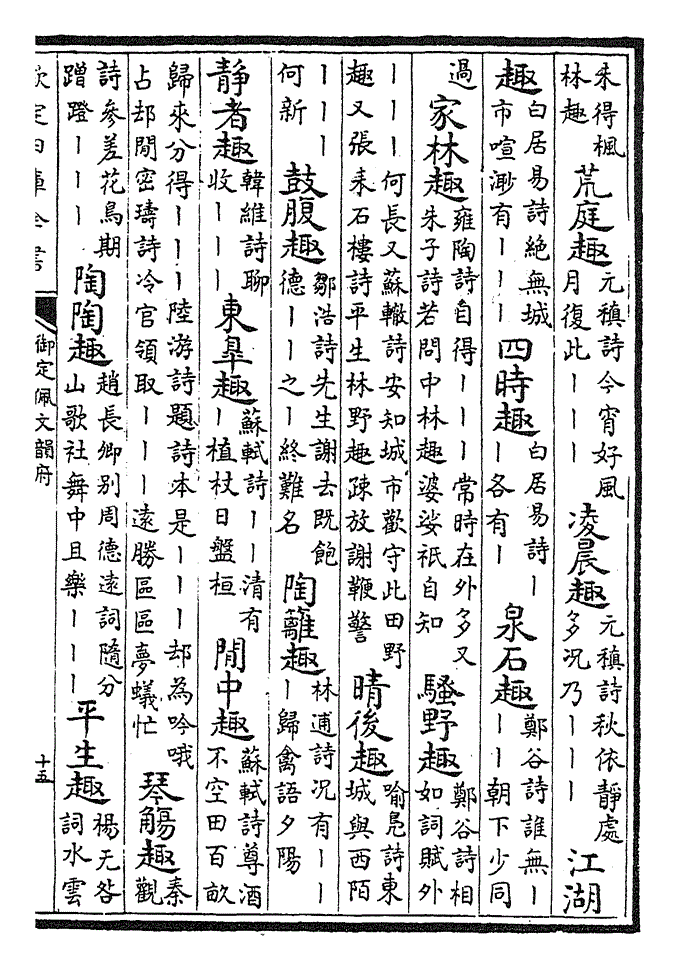 朱得楓
林趣
荒庭趣
元稹詩今宵好風
月復此丨丨丨
凌晨趣
元稹詩秋依靜處
多况乃丨丨丨
江湖
趣
白居易詩絶無城
市喧渺有丨丨丨
四時趣
白居易詩丨
丨各有丨
泉石趣
鄭谷詩誰無丨
丨丨朝下少同
過
家林趣
雍陶詩自得丨丨丨常時在外多又
朱子詩若問中林趣婆娑祇自知
騷野趣
鄭谷詩相
如詞賦外
丨丨丨何長又蘇轍詩安知城市歡守此田野
趣又張耒石樓詩平生林野趣疎放謝鞭警
晴後趣
喻鳧詩東
城與西陌
丨丨丨
何新
鼓腹趣
鄒浩詩先生謝去既飽
德丨丨之丨終難名
陶籬趣
林逋詩况有丨丨
丨歸禽語夕陽
静者趣
韓維詩聊
收丨丨丨
東皐趣
蘇軾詩丨丨清有
丨植杖日盤桓
閒中趣
蘇軾詩尊酒
不空田百畝
歸來分得丨丨丨陸游詩題詩本是丨丨丨却為吟哦
占却閒密璹詩冷官領取丨丨丨遠勝區區夢蟻忙
琴觴趣
秦
觀
詩參差花鳥期
蹭蹬丨丨丨
陶陶趣
趙長卿别周德遠詞隨分
山歌社舞中且樂丨丨丨
平生趣
楊无咎
詞水雲
欽定四庫全書
御定佩文韻府
十五